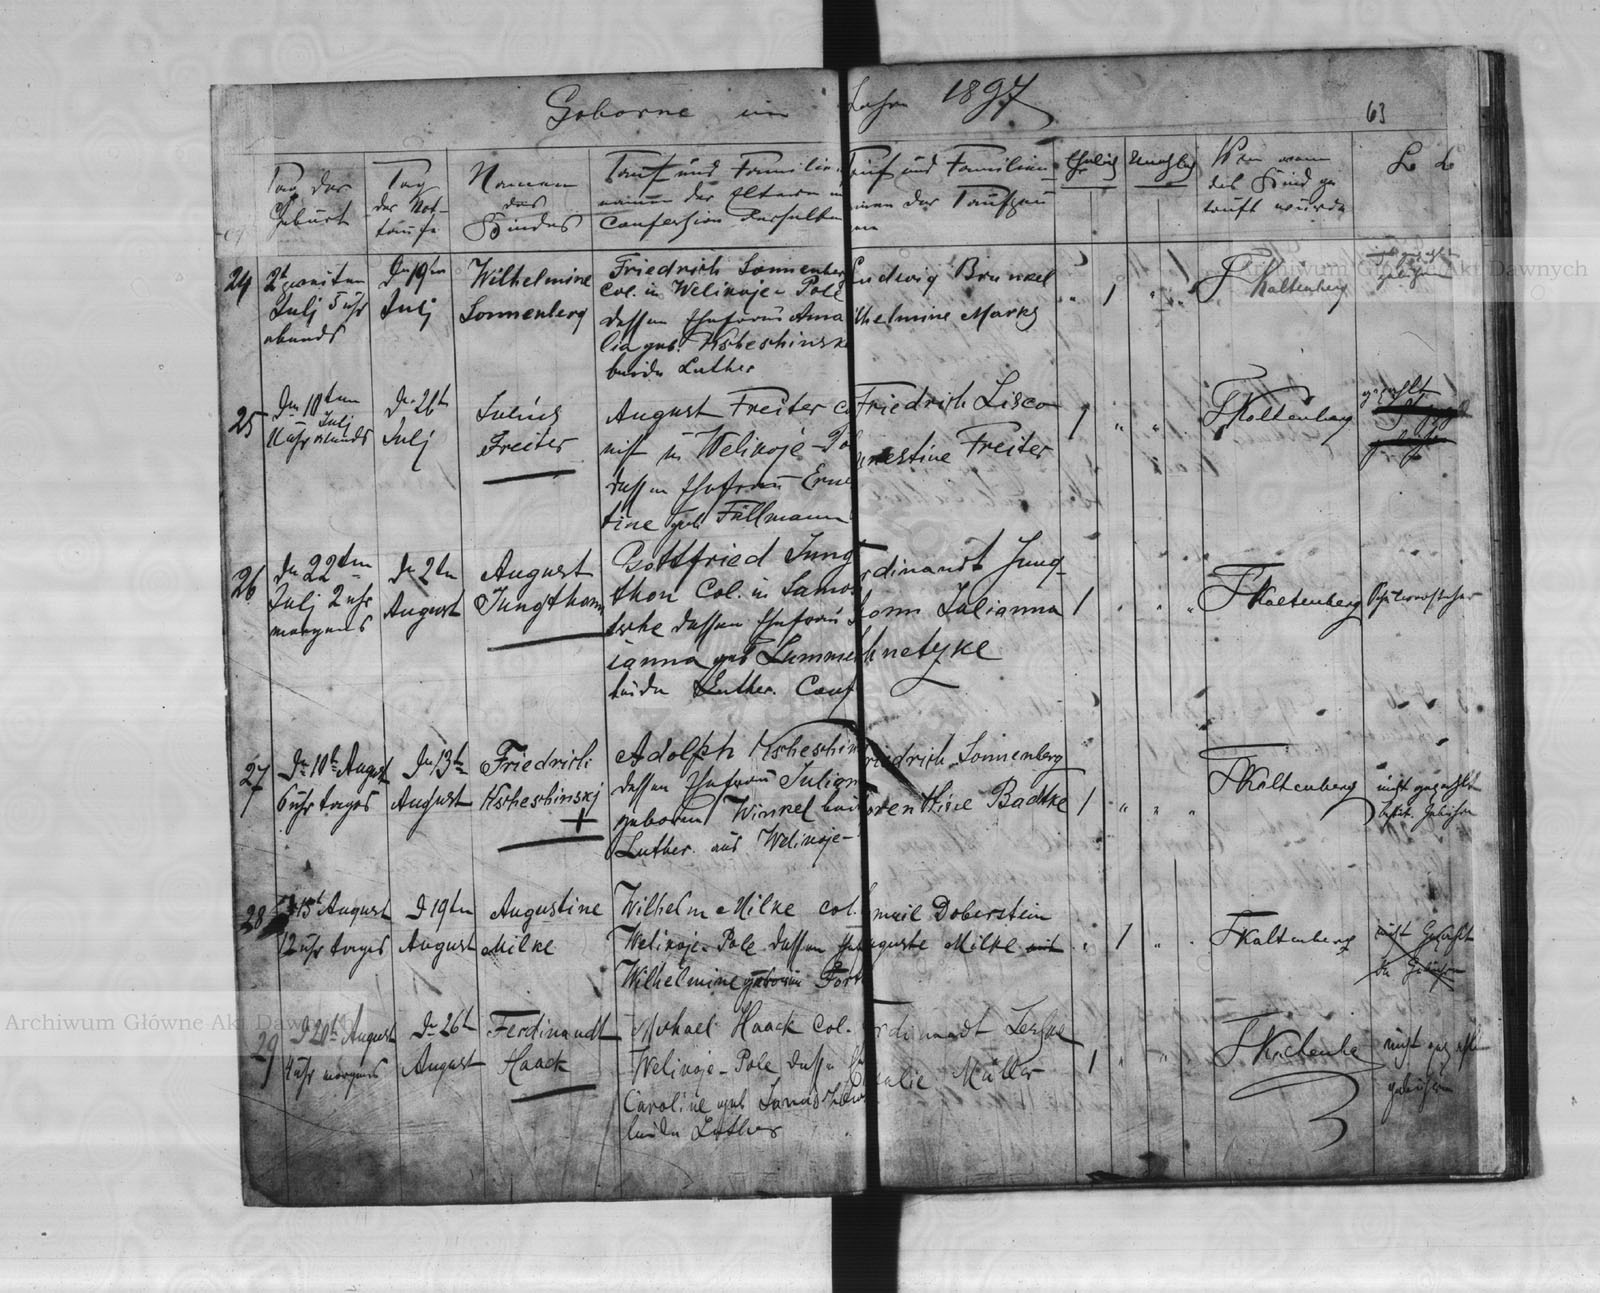 Geborne im Jahre 1897
63
Tag der Geburt
Tag der Nottaufe
Namen des Kindes
Tauf und Familien namen der Eltern und Confession derselben
Tauf und Familien namen der Taufzeugen
Ehelich
Unehlich
Von wem das Kind getauft wurde
24
2ten
Julj 5 uhr
abends
Den 19ten
Julj
Wilhelmine
Sonnenberg
Friedrich Sonnenberg
Col. in Welikoje-Pole
dessen Ehefrau Ama
lia geb. Kscheschinsk
beide Luther
Ludwig Brunkel
Wilhelmine Marks
1
F Kaltenberg
25
Den 10ten
Julj
11 uhr abends
De 26t
Julj
Julius
Freiter
August Freiter Colo
nist in Welikoje-Pol
dessen Ehefrau Ernes
tine geb. Füllmann
Friedrich Lisco
Ernestine Freiter
1
F Kaltenberg
gezahlt
26
Den 22ten
Julj 2 uhr
morgens
De 2ten
August
August
Jungthon
Gottfried Jung
thon Col. in Samos
tsche dessen Ehefrau Juli
ianna geb. Lemmer
beide Luther. Conf
Ferdinandt Jung
thonn Julianna
Schnetzke
1
F Kaltenberg
27
De 10te August
6 uhr tages
De 13te
August
Friedrich
Kscheschinskj
+
Adolph Kscheschin
dessen Ehefrau Julian
geboren Winkel beide
Luther. aus Welikoje-
Friedrich Sonnenberg
Lorenthine Badtke
1
F Kaltenberg
nicht gezahlt
Gebühren
28
D 15t August
12 uhr tages
D 19ten
August
Augustine
Milke
Wilhelm Milke Col.
Welikoje-Pole dessen Ehef
Wilhelmine geboren
Emil Doberstein
Auguste Milke
1
F Kaltenberg
nicht Gezahlt
die Gebühren
29
D 20t August
4 uhr morgens
De 26t
August
Ferdinandt
Haack
Michael Haack Col.
Welikoje-Pole dessen Ehe
Caroline geb.
beide Luther
Ferdinandt Leske
Müller
1
nicht gezahlt
gebühren
Archiwum Główne Akt Dawnych
Archiwum Główne Akt Dawnych